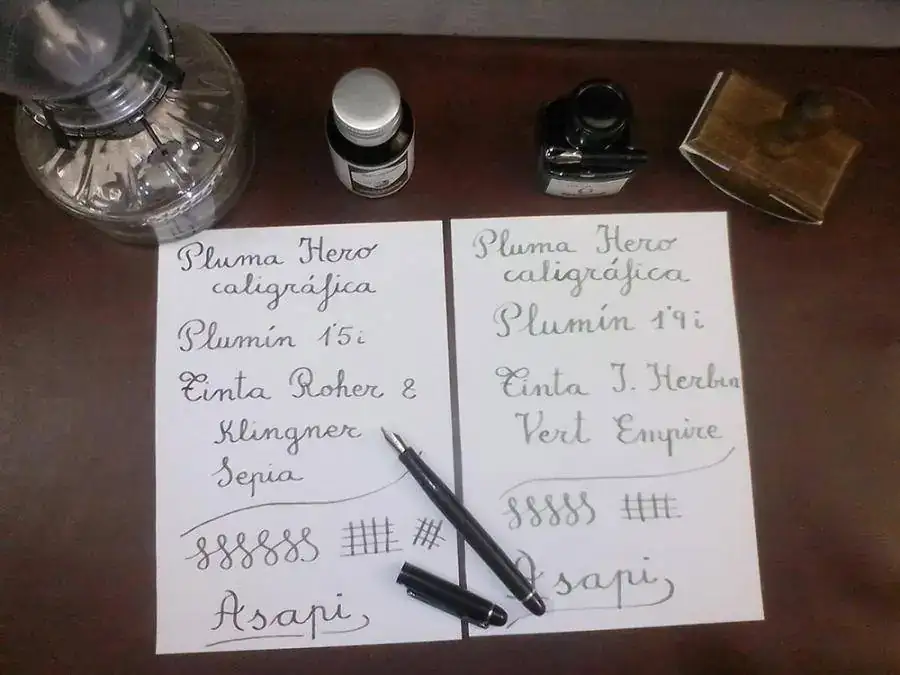 Pluma Hero
caligráfica
Plumín 1'5i
Tinta Roher &
Klingner
Sepia
Asapi
Pluma Hero
caligráfica
Plumín 1'9i
Tinta J. Herbin
Vert Empire
Asapi